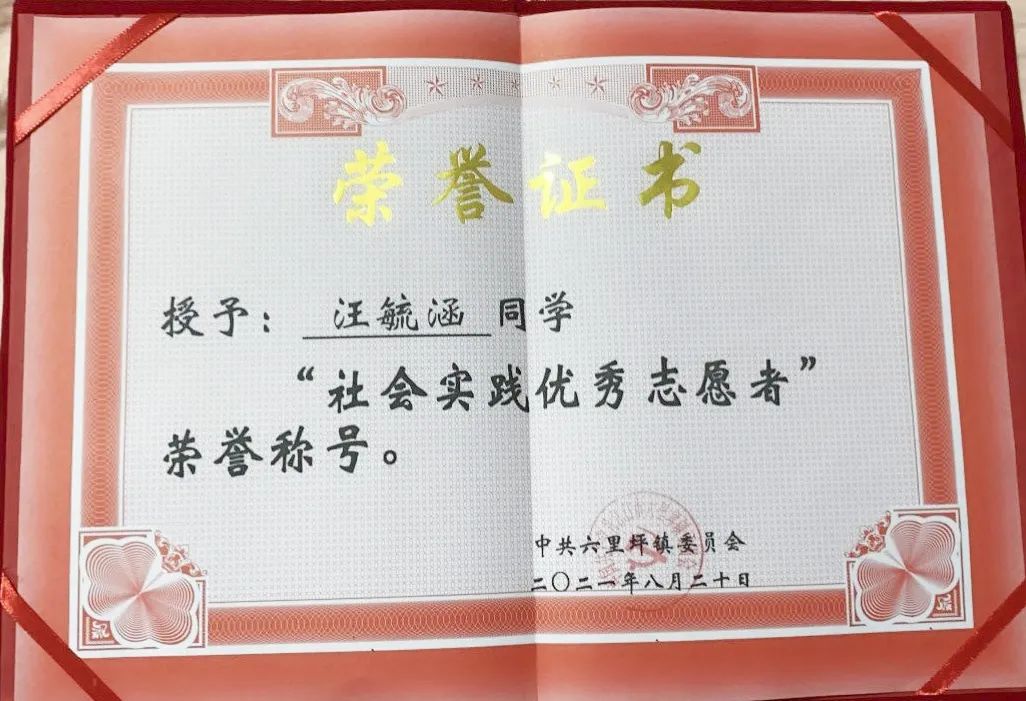 荣誉证书
授予：汪毓涵同学
“社会实践优秀志愿者”
荣誉称号。
中共六里坪镇委员会
二〇二一年八月二十日